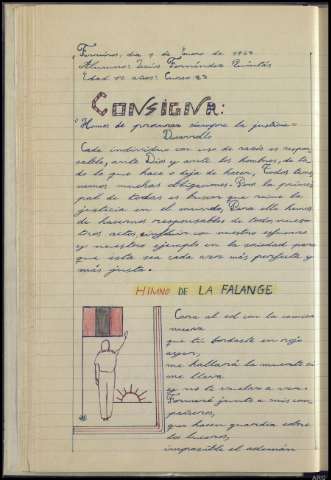 Ferreiros, día 9 de Enero de 1963
Alumno: Luis Fernández Quintás
Edad 12 años: Curso
CONSIGNA:
"Hemos de procurar siempre la justicia=
Desarrollo
Cada individuo con uso de razón es respon-
sable, ante Dios y ante los hombres, de to-
do lo que hace o deja de hacer. Todos tene-
mos muchas obligaciones. Pero la princi-
pal de todas es buscar que reine la
justicia en el mundo. Para ello hemos
de hacernos responsables de todos nues-
tros actos, con nuestro esfuerzo
y nuestro ejemplo en la sociedad para
que ésta sea cada vez más perfecta y
más justa.=
HIMNO DE LA FALANGE
Cara al sol con la camisa
nueva
que tú bordaste en rojo
ayer,
me hallará la muerte si
me lleva
y no te vuelvo a ver.
Formaré junto a mis com-
pañeros,
que hacen guardia sobre
los luceros,
impasible el ademán